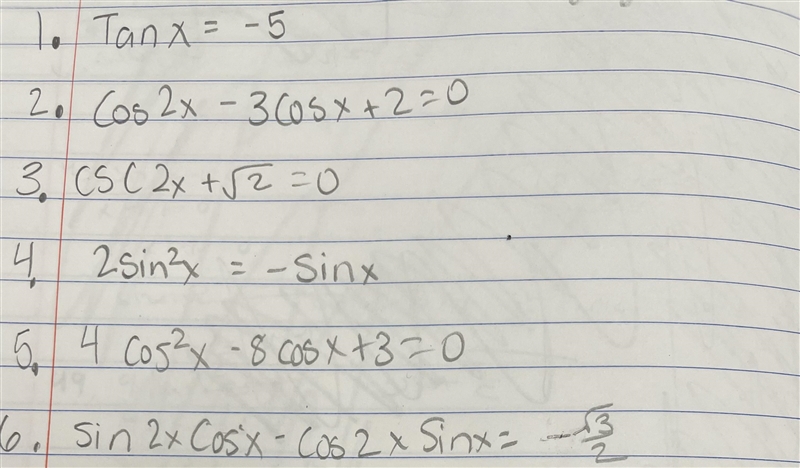 1. Tan x = -5
2. Cos 2x - 3 Cos x + 2 = 0
3. CSC 2x + √2 = 0
4. 2 Sin²x = - Sin x
5. 4 Cos²x - 8 cos x + 3 = 0
6. Sin 2x Cos x - Cos 2x Sin x = -√3/2